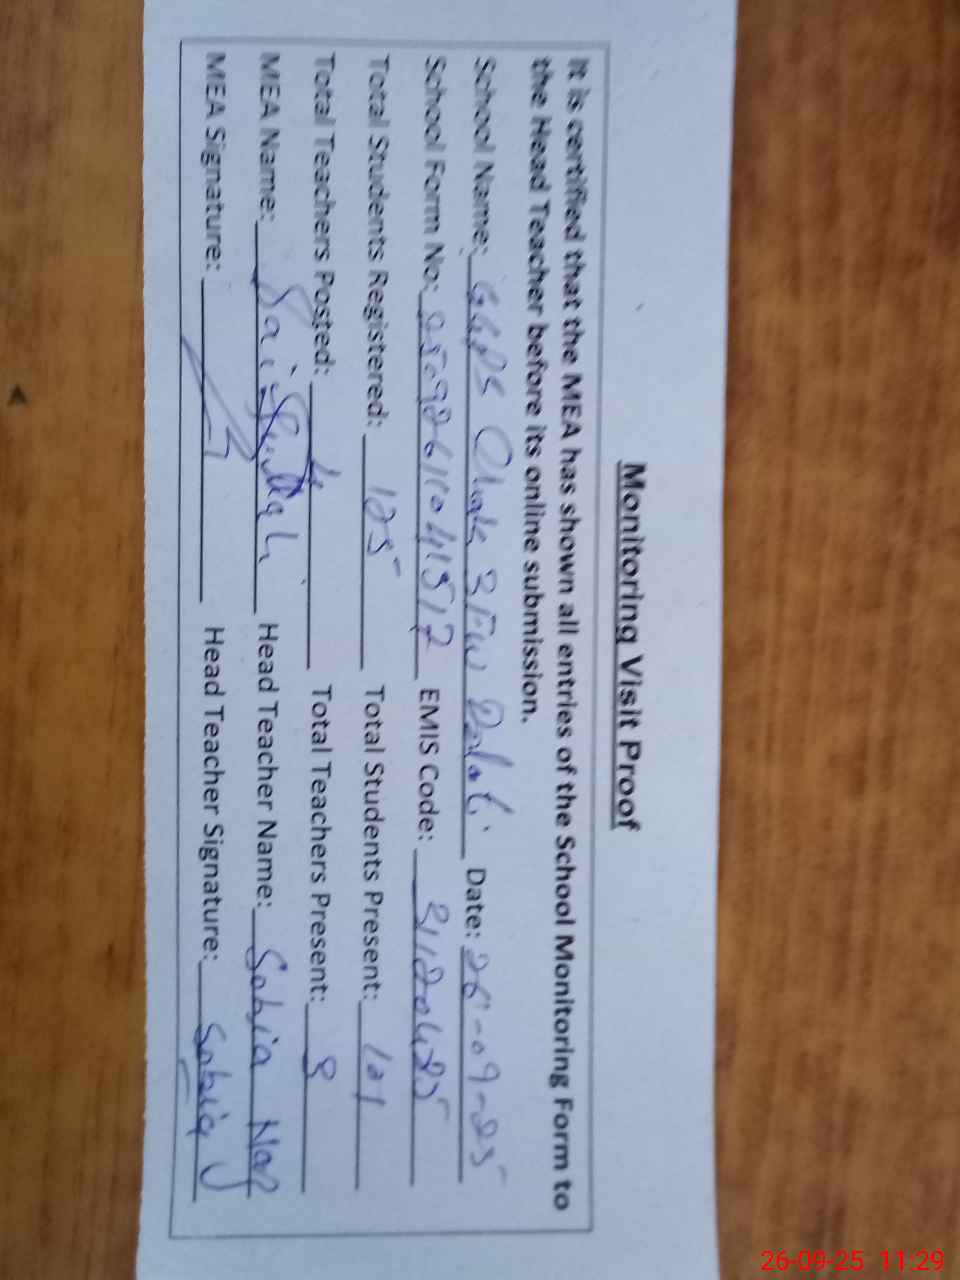 Monitoring Visit Proof
It is certified that the MEA has shown all entries of the School Monitoring Form to
the Head Teacher before its online submission.
School Name: GGPS Chak 3 Date: 26-09-25
School Form No: EMIS Code: 31120485
Total Students Registered: 125 Total Students Present: 101
Total Teachers Posted: Total Teachers Present: 3
MEA Name: Head Teacher Name: Sobia Naz
MEA Signature: Head Teacher Signature: Sobia
26-09-25 11:29